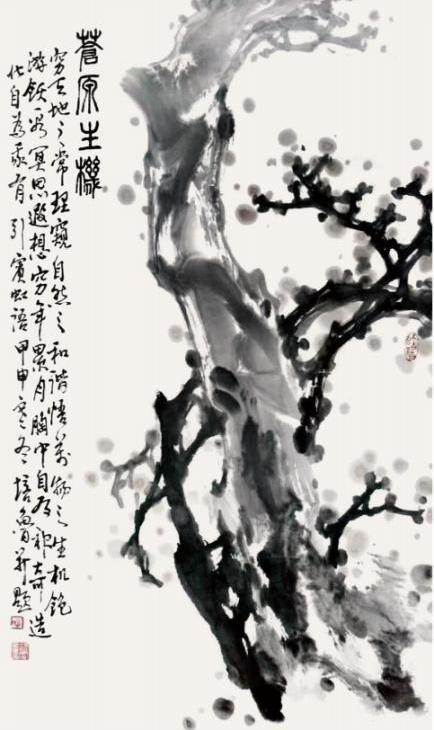 蒼原生機
穷天地之常理窺自然之和諧悟萬物之生机飽
游飫看冥思遐想穷年累月胸中自具神奇造
化自為我有引賓虹語甲申寒冬培魯并題